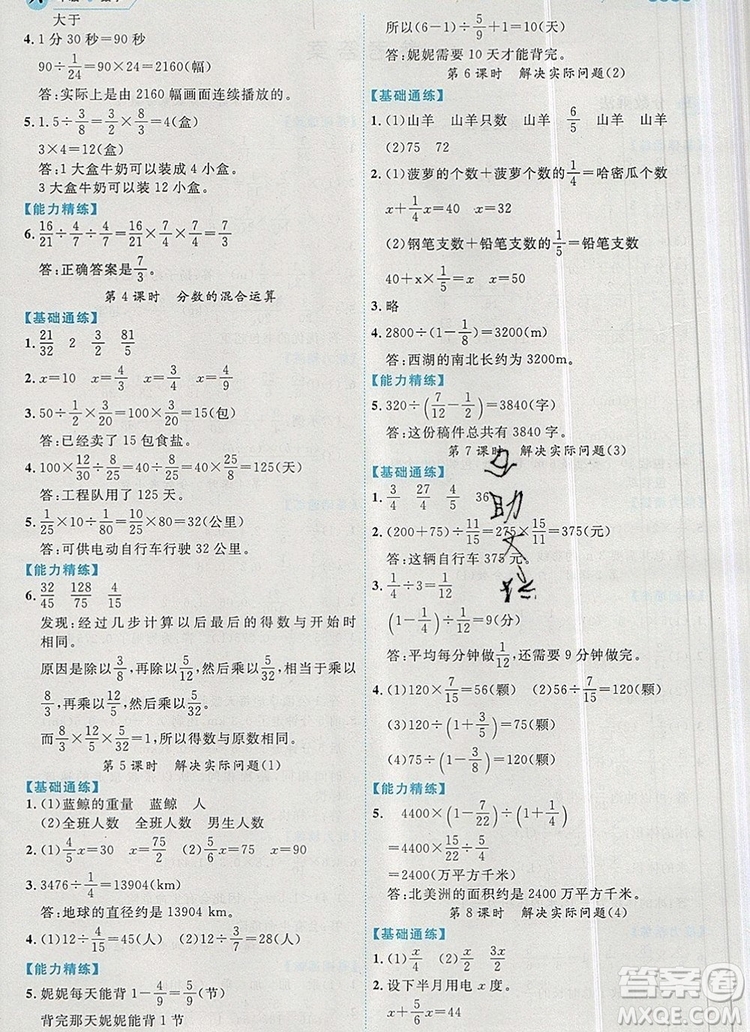 大于
4. 1 分 30 秒=90(秒)
90÷1/24=90×24=2160(幅)
答:实际上是由 2160 幅画面连续播放的。
5. 1.5÷3/8=4(盒)
3×4=12(盒)
答:1 大盒牛奶可以装成 4 小盒。
3 大盒牛奶可以装 12 小盒。
【能力精练】
6. 16/21÷4/7÷4/7=16/21×7/4×7/4=7/3
答:正确答案是7/3。
第 4 课时 分数的混合运算
【基础通练】
1. 21/32 2 3/2 81/5
2. x=10 x=4/3 x=3/4
3. 50÷1/2×3/20=100×3/20=15(包)
答:已经卖了 15 包食盐。
4. 100×1/4÷1/5=25÷1/5=125(天)
答:工程队用了 125 天。
5. 1/25÷1/10×80=2/5×80=32(公里)
答:可供电动自行车行驶 32 公里。
【能力精练】
6. 32/45 128/75 4/5
发现:经过几步计算以后最后的得数与开始时
相同。
原因是除以3/8再除以5/8再乘以3/4再除以16/5,
就是乘以8/3,再乘以8/5,再乘以3/4,再乘以5/16。
而8/3×8/5×3/4×5/16=1,所以得数与原数相同。
第 5 课时 解决实际问题(1)
【基础通练】
1. (1)蓝鲸的重量 蓝鲸 人
(2)全班人数 全班人数 男生人数
2. (1)4/5x=30 x=75/2 (2)2/3x=50 x=75
3. 3476÷1/4=13904(km)
答:地球的直径约是 13904 km。
4. (1)12÷4/15=45(人) (2)12÷3/7=28(人)
【能力精练】
5. 妮妮每天能背1-4/9=5/9(节)
背完那天妮妮能背 1 节
所以(6-1)÷5/9+1=10(天)
答:妮妮需要 10 天才能背完。
第 6 课时 解决实际问题(2)
【基础通练】
1. (1)山羊 山羊只数 山羊 6/5
(2)75 72
2. (1)菠萝的个数+菠萝的个数的1/4=哈密瓜个数
x+1/4x=40
(2)钢笔支数+铅笔支数的1/5=铅笔支数
40+x×1/5=x
3. 略
4. 2800÷(1-1/8)=3200(m)
答:西湖的南北长约为 3200m。
【能力精练】
5. 320÷(7/12-1/2)=3840(字)
答:这份稿件总共有 3840 字。
第 7 课时 解决实际问题(3)
【基础通练】
1. 3/4 27/4 4/5 36
2. (200+75)÷11/15=275×15/11=375(元)
答:这辆自行车 375 元。
3. 1/4÷3=1/12
(1-1/4)÷1/12=9(分)
答:平均每分钟做1/12,还要 9 分钟做完。
4. (1)120×7/15=56(颗) (2)120÷(1+7/8)=64(颗)
(3)120÷(1+3/5)=75(颗)
(4)75×(1-3/5)=30(颗)
【能力精练】
5. 4400×(1-7/22)÷(1+1/4)
=4400×15/22÷5/4
=2400(万平方千米)
答:北美洲的面积约是 2400 万平方千米。
第 8 课时 解决实际问题(4)
【基础通练】
1. (1)x/4 (2)x/2 3x/2
2. 设下半月用电 x 度。
x+5/6x=44
答案圈
MXQE.COM